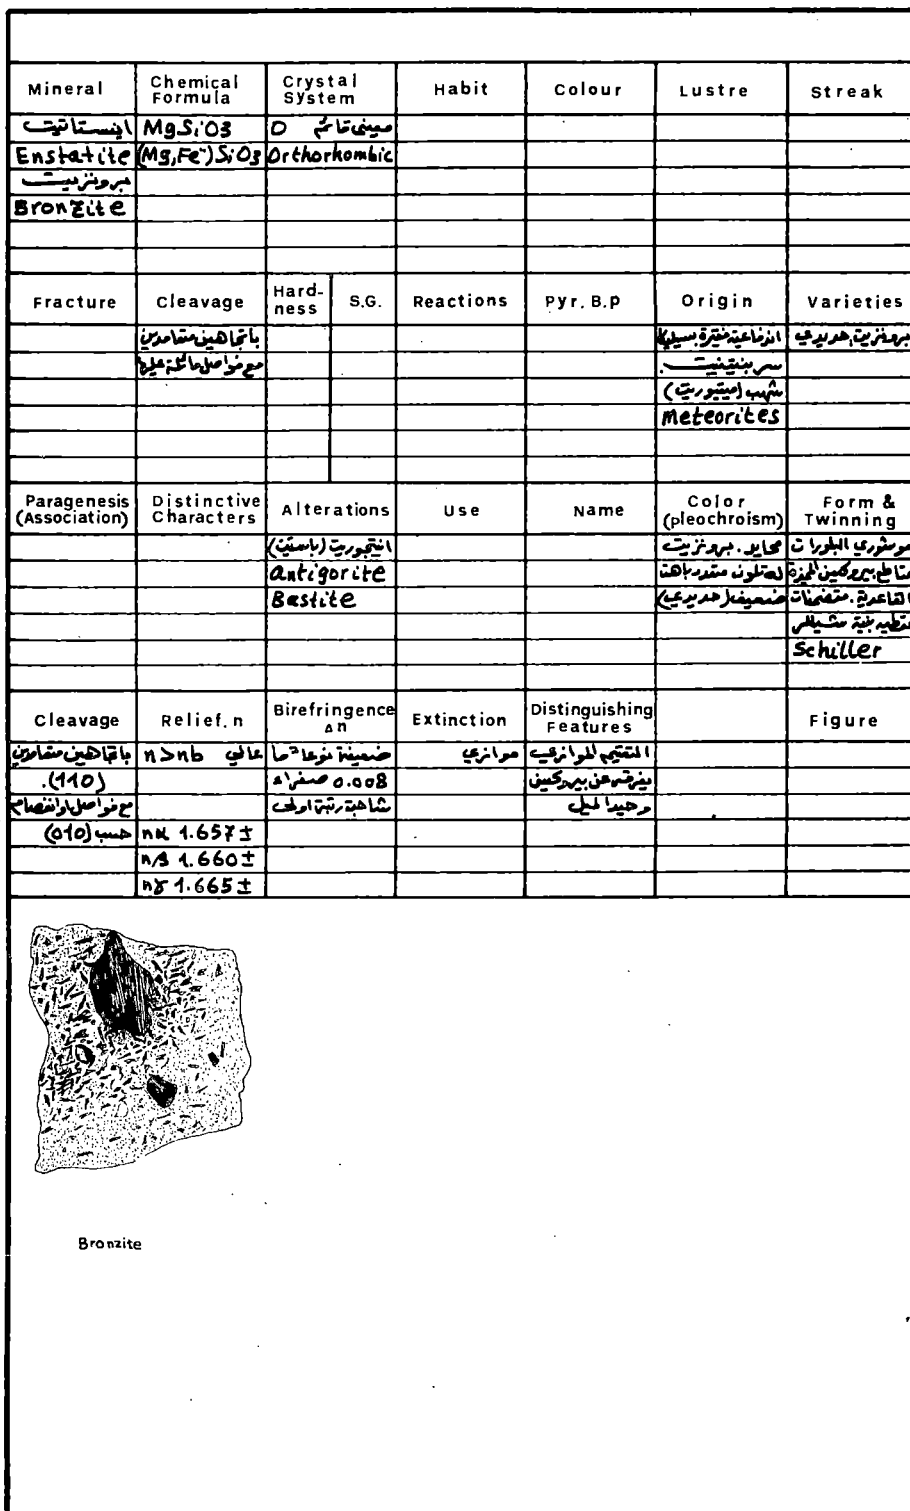 Mineral Chemical Formula Crystal System Habit Colour Lustre Streak
اينستاتيت MgSiO3 O معيني قائم
Enstatite (Mg,Fe")SiO3 Orthorhombic
برونزيت
Bronzite
Fracture Cleavage Hard-ness S.G. Reactions Pyr. B.P Origin Varieties
باتجاهين متعامدين اندفاعية فقيرة بسيليكا برونزيت حديدي
مع فواصل مائلة عليها سربنتينيت.
شهب (ميتيوريت)
meteorites
Paragenesis (Association) Distinctive Characters Alterations Use Name Color (pleochroism) Form & Twinning
انتيجوريت (باستيت) محايد. برونزيت موشوري البلورات
antigorite له تلون متعدد باهت مقاطع بيروكسين المميزة
Bastite ضعيف (حديدي) القاعدية. متضمنات
تعطيه بنية شيللر
Schiller
Cleavage Relief. n Birefringence Δn Extinction Distinguishing Features Figure
باتجاهين متعامدين عالي n>nb ضعيفة نوعا ما موازي
(110). 0.008 صفراء يفرقه عن بيروكسين
مع فواصل او انفصام رتبة اولى وحيد الميل
حسب (010) nα 1.657±
nβ 1.660±
nγ 1.665±
Bronzite